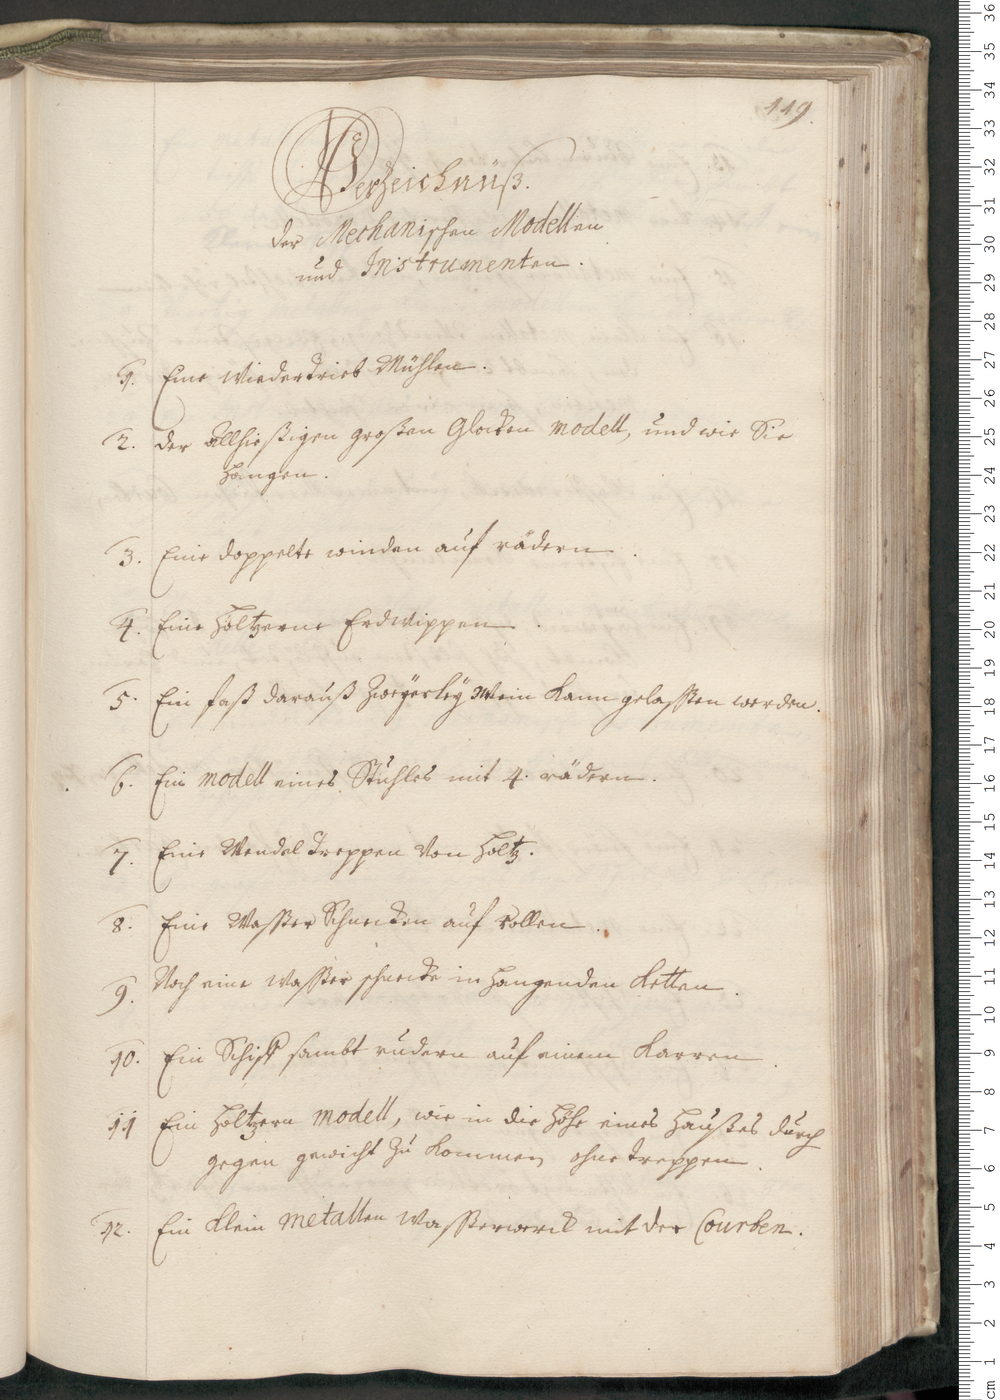 119.
Verzeichnüß.
der Mechanischen Modellen
und Instrumenten.
1. Eine Wiedertrieb Mühlen.
2. der allhießigen großen Glocken modell, und wie Sie
hangen.
3. Eine doppelte winden auf rädern.
4. Eine höltzerne Erdwippen.
5. Ein faß darauß Zweyerley Wein kann gelaßen werden.
6. Ein modell eines Stuhles mit 4. rädern.
7. Eine Wendel Treppen von holtz.
8. Eine Waßer Schnecken auf rollen.
9. Noch eine waßer schnecke in hangenden ketten.
10. Ein Schiff sambt rudern auf einem Karren.
11 Ein höltzern modell, wie in die höhe eines haußes durch
gegen gewicht zu kommen ohne treppen.
12. Ein klein metallen Waßerwerck mit der Courben.